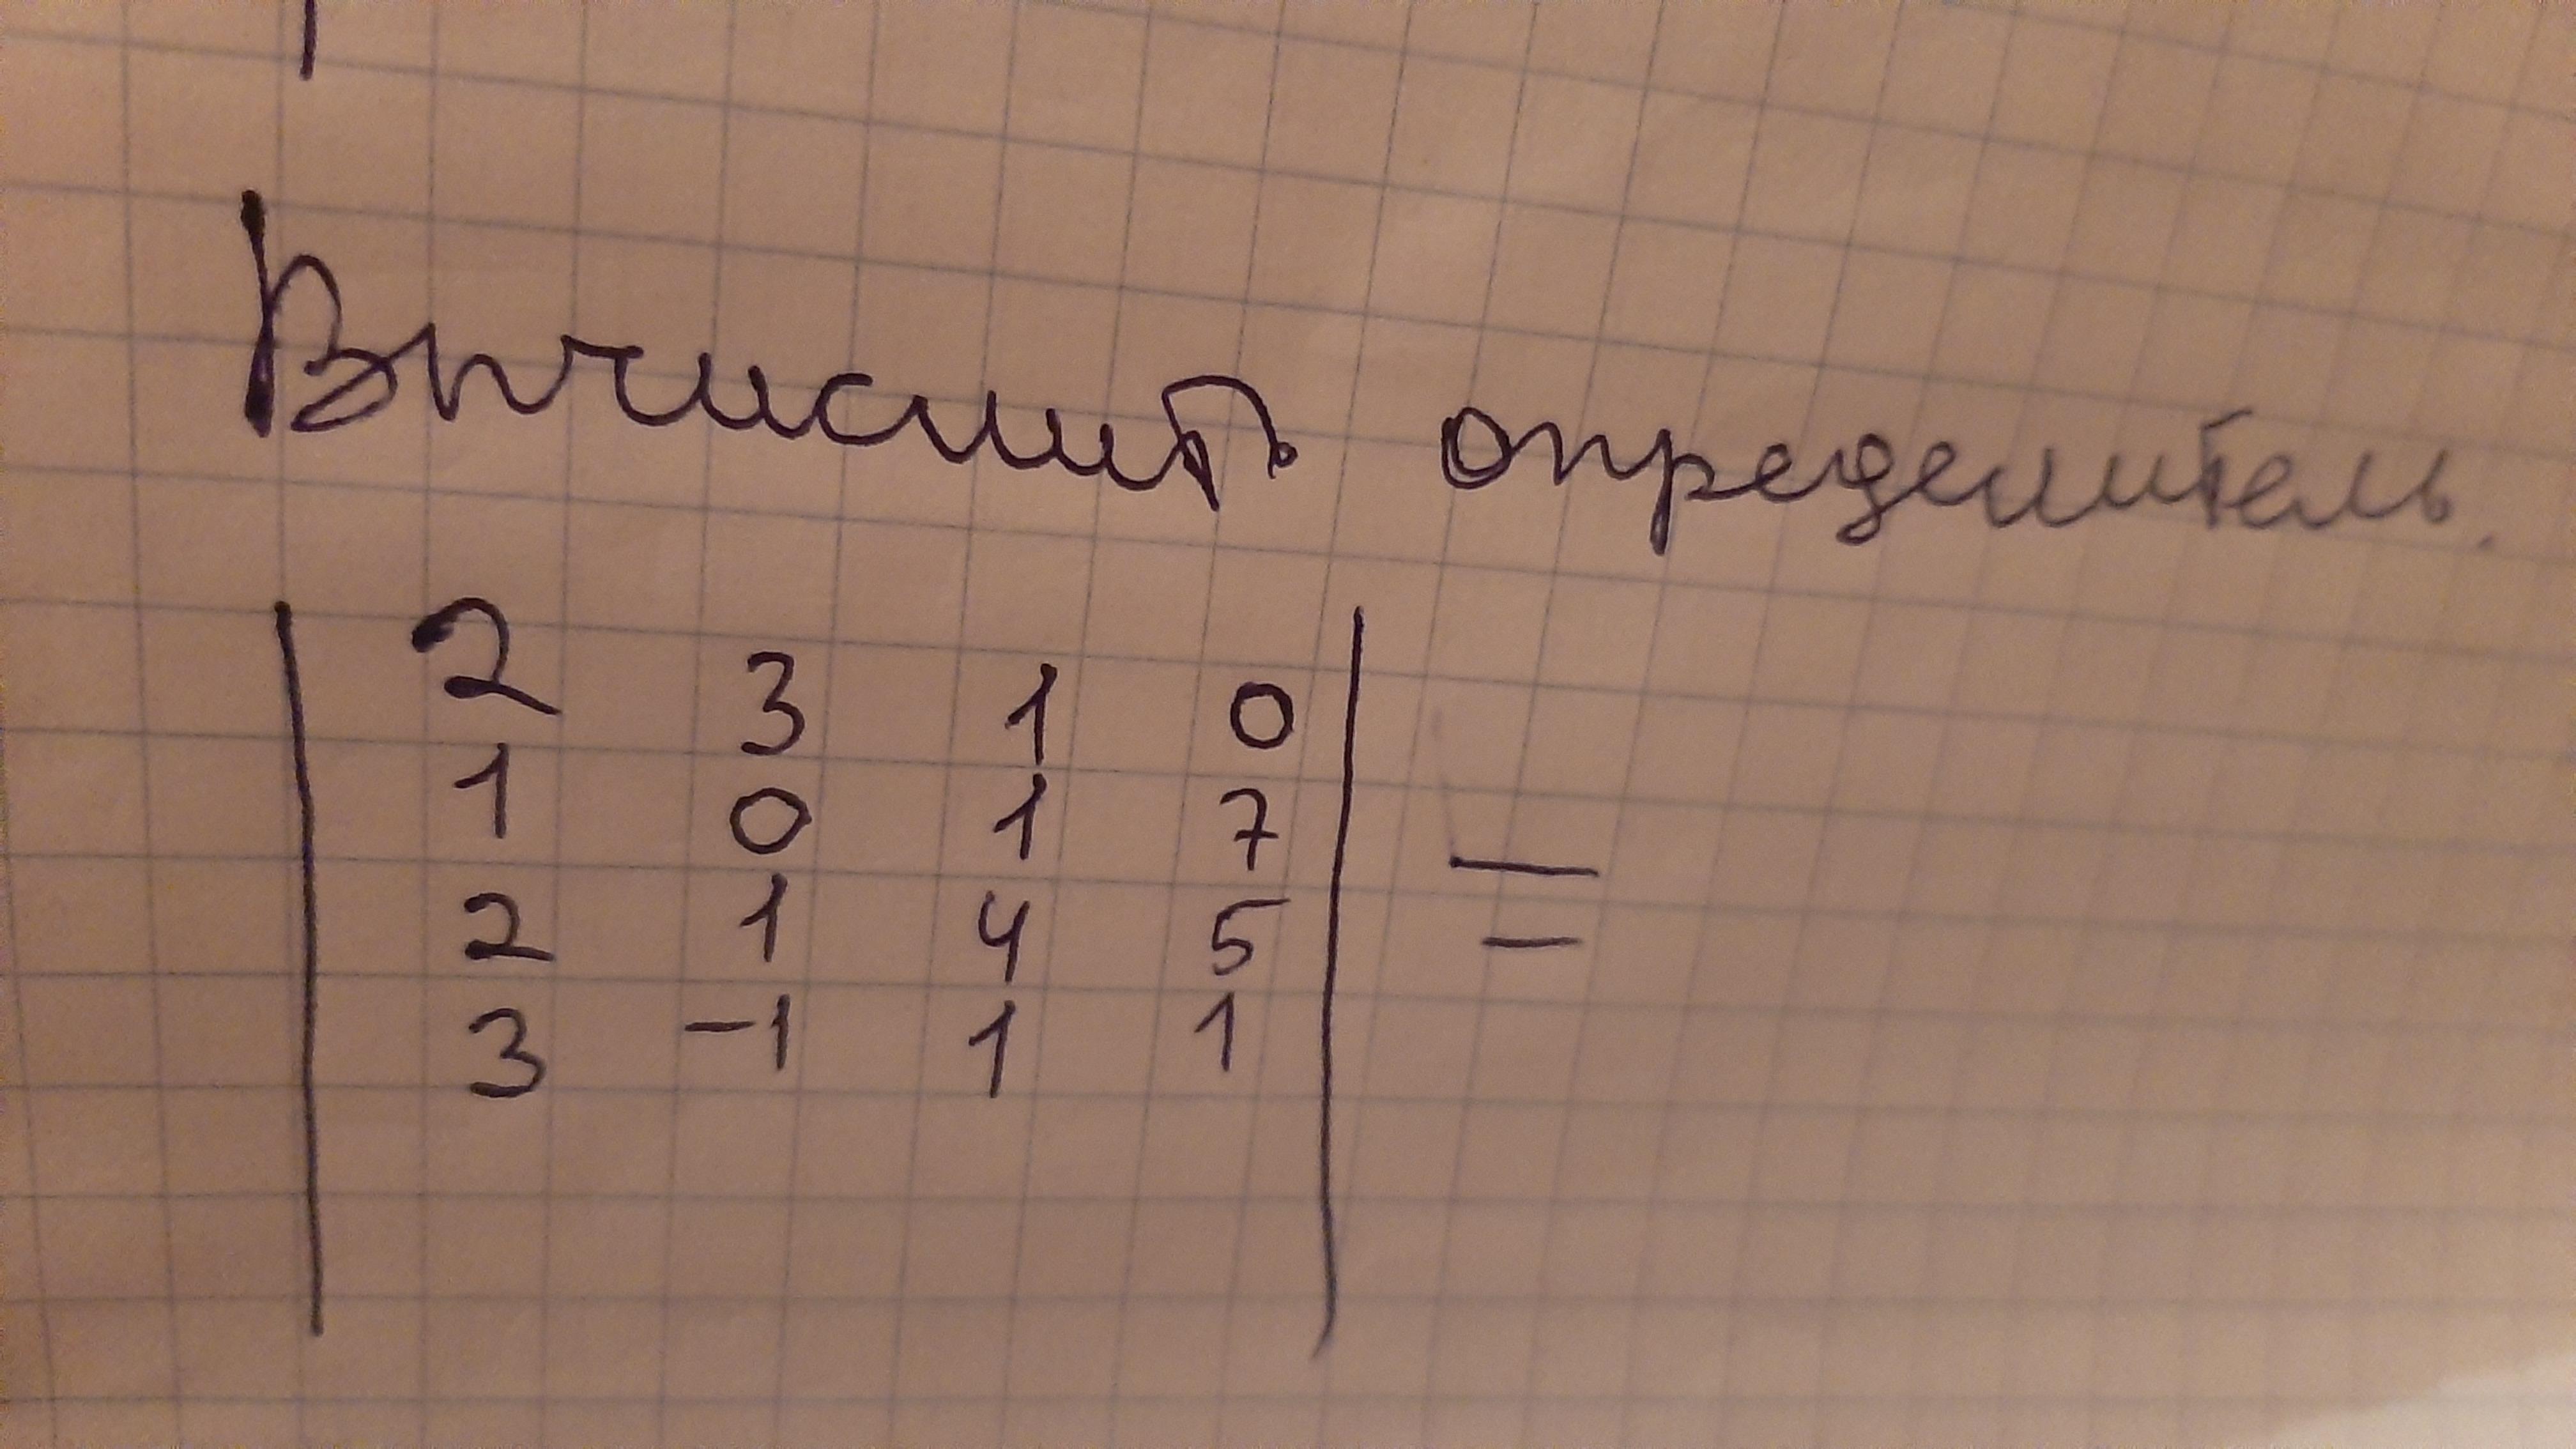 Вычислить определитель.
| 2 3 1 0 |
| 1 0 1 7 | =
| 2 1 4 5 |
| 3 -1 1 1 |